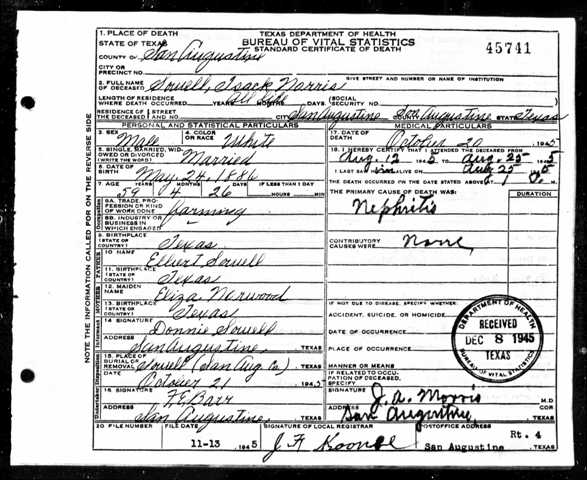 1. PLACE OF DEATH
STATE OF TEXAS
TEXAS DEPARTMENT OF HEALTH
BUREAU OF VITAL STATISTICS
STANDARD CERTIFICATE OF DEATH
45741
COUNTY OF San Augustine
CITY OR PRECINCT NO.
GIVE STREET AND NUMBER OR NAME OF INSTITUTION
2. FULL NAME OF DECEASED Sowell, Isack Norris
LENGTH OF RESIDENCE WHERE DEATH OCCURRED YEARS MONTHS DAYS
SOCIAL SECURITY NO.
RESIDENCE OF THE DECEASED STREET AND NO. CITY San Augustine San Augustine STATE Texas
PERSONAL AND STATISTICAL PARTICULARS
3. SEX Male
4. COLOR OR RACE White
5. SINGLE, MARRIED, WIDOWED OR DIVORCED (WRITE THE WORD) Married
6. DATE OF BIRTH May, 24, 1886
7. AGE YEARS MONTHS DAYS IF LESS THAN 1 DAY
59 4 26 HOURS MIN
8A. TRADE, PROFESSION OR KIND OF WORK DONE farming
8B. INDUSTRY OR BUSINESS IN WHICH ENGAGED
9. BIRTHPLACE (STATE OR COUNTRY) Texas
10 NAME Elbert Sowell
11. BIRTHPLACE (STATE OR COUNTRY) Texas
12. MAIDEN NAME Eliza Norwood
13. BIRTHPLACE (STATE OR COUNTRY) Texas
14 SIGNATURE Donnie Sowell
ADDRESS San Augustine, TEXAS
15. PLACE OF BURIAL OR REMOVAL Sowell (San Aug. Co.) TEXAS
DATE October 21 1945
16. SIGNATURE F. E. Barr
ADDRESS San Augustine, TEXAS
MEDICAL PARTICULARS
17. DATE OF DEATH October 20 1945
18. I HEREBY CERTIFY THAT I ATTENDED THE DECEASED FROM
Aug. 12 1945 TO Aug. 25 1945
I LAST SAW ALIVE ON Aug 25 1945
THE DEATH OCCURRED ON THE DATE STATED ABOVE
THE PRIMARY CAUSE OF DEATH WAS:
DURATION
Nephritis
CONTRIBUTORY CAUSES WERE None
IF NOT DUE TO DISEASE, SPECIFY WHETHER:
ACCIDENT, SUICIDE, OR HOMICIDE
DATE OF OCCURRENCE
PLACE OF OCCURRENCE
MANNER OR MEANS
IF RELATED TO OCCUPATION OF DECEASED, SPECIFY
SIGNATURE J. A. Morris M.D
ADDRESS San Augustine TEXAS
DEPARTMENT OF HEALTH
RECEIVED
DEC 8 1945
TEXAS
BUREAU OF VITAL STATISTICS
20 FILE NUMBER
FILE DATE
11-13 1945
SIGNATURE OF LOCAL REGISTRAR
POSTOFFICE ADDRESS
Rt. 4
San Augustine TEXAS
NOTE THE INFORMATION CALLED FOR ON THE REVERSE SIDE